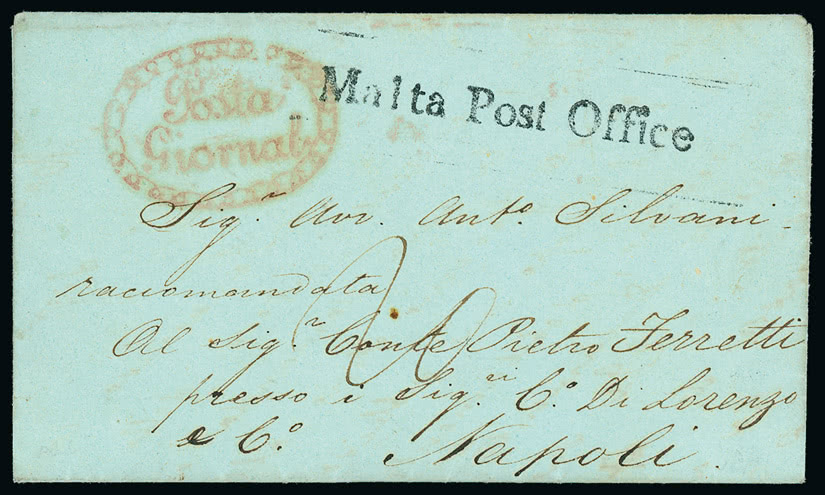 Posta
Giornal
Malta Post Office
Sig.r Avv. Ant.o Silvani
raccomandata
Al Sig.r Conte Pietro Ferretti
presso i Sig.ri C.o Di Lorenzo
e C.o
Napoli.